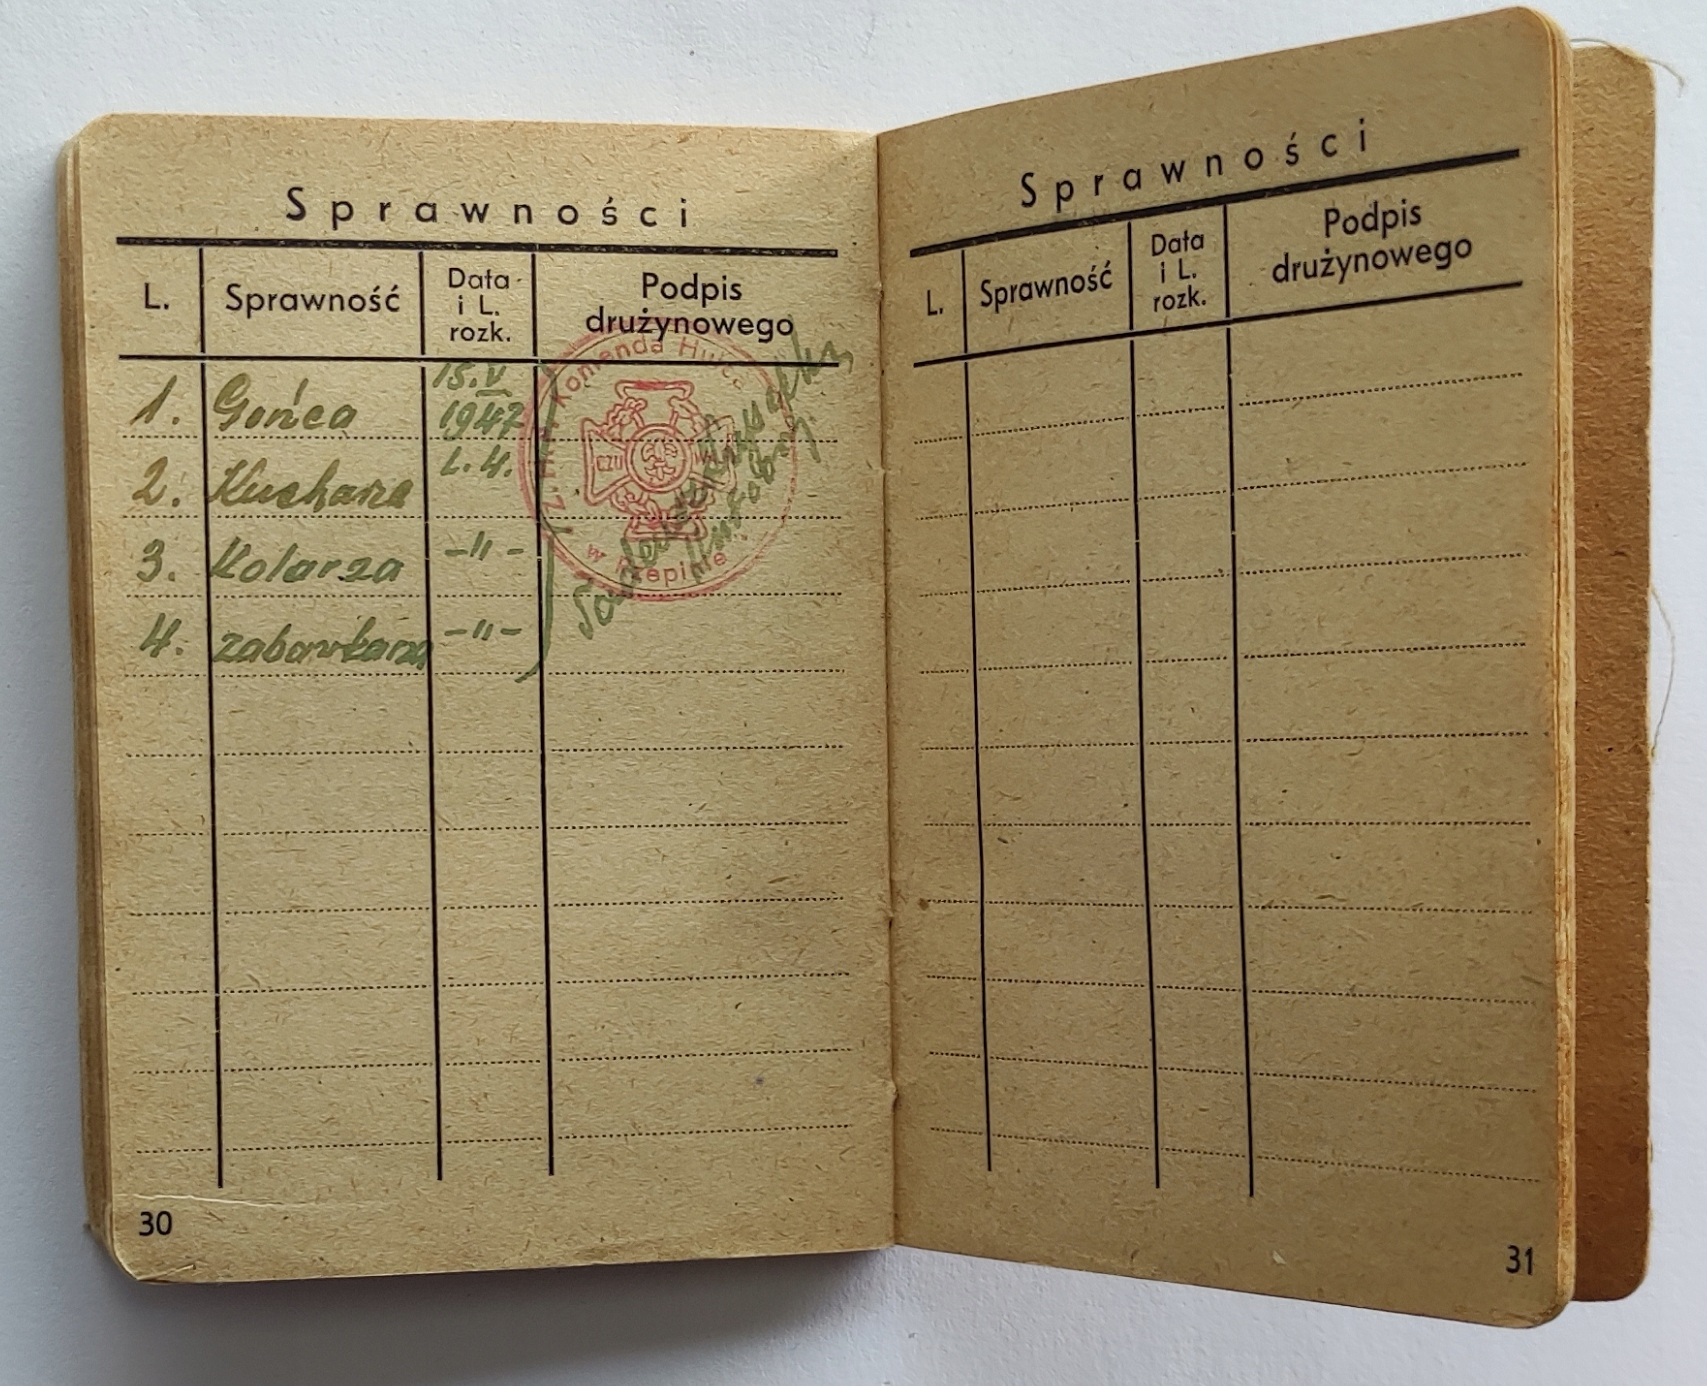 Sprawności
L.
Sprawność
Data
i L.
rozk.
Podpis
drużynowego
1. Gońca 15.V
1947
2. Kucharza L. 4.
3. Kolarza -"-
4. zabawkarza -"-
Z.H.P. Komenda Hufca
CZU
w Rzepinie
30
Sprawności
L.
Sprawność
Data
i L.
rozk.
Podpis
drużynowego
31